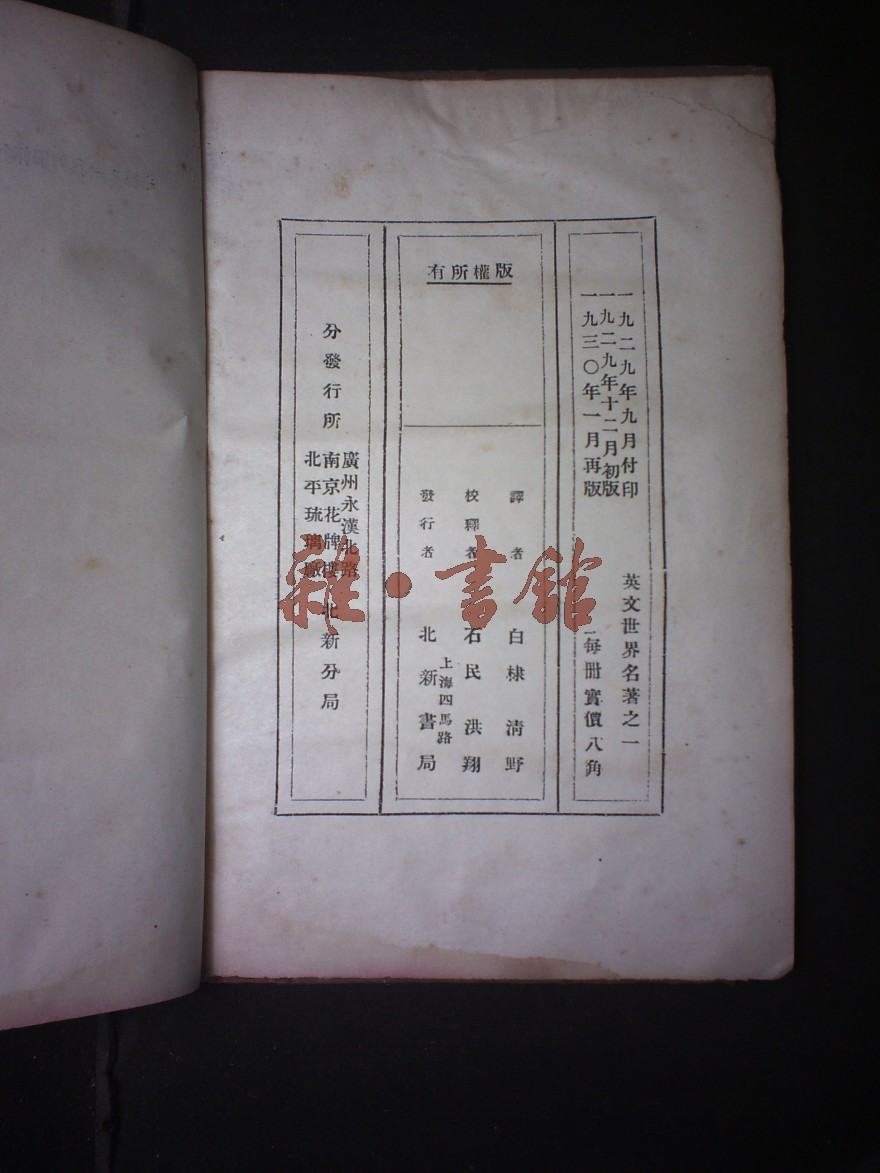 一九二九年九月付印
一九二九年十二月初版
一九三〇年一月再版
英文世界名著之一
每冊實價八角
版權所有
譯者 白棣 清野
校釋者 石民 洪翔
發行者 上海四馬路 北新書局
分發行所
廣州永漢北路
南京花牌樓
北平琉璃廠
北新分局
雜·書館